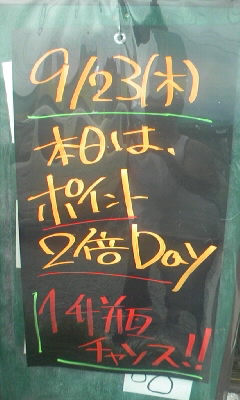 9/23(木)
本日は、
ポイント
2倍Day
1升瓶
チャンス!!